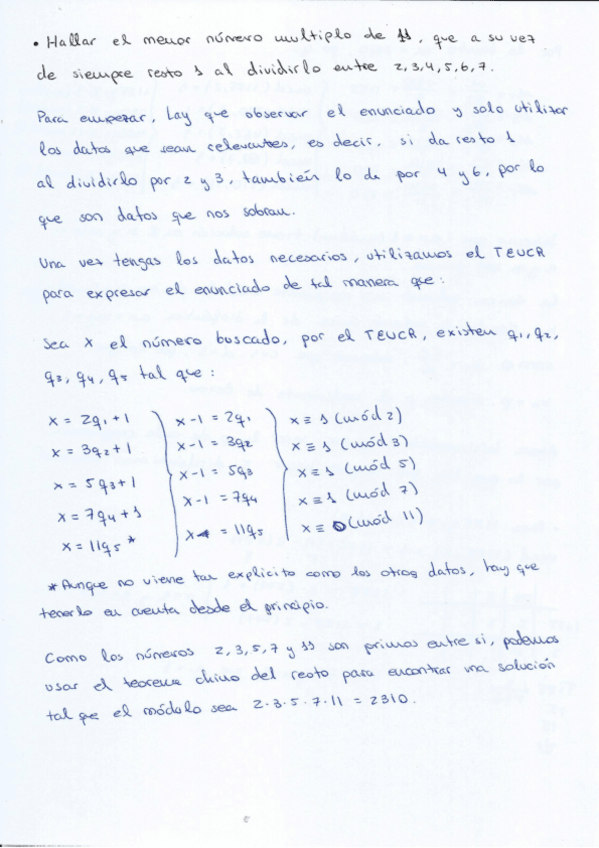 • Hallar el menor número multiplo de 11, que a su vez
de siempre resto 1 al dividirlo entre 2,3,4,5,6,7.
Para empezar, hay que observar el enunciado y solo utilizar
los datos que sean relevantes, es decir, si da resto 1
al dividirlo por 2 y 3, también lo da por 4 y 6, por lo
que son datos que nos sobran.
Una vez tengas los datos necesarios, utilizamos el TEUCR
para expresar el enunciado de tal manera que:
Sea x el número buscado, por el TEUCR, existen q₁, q₂,
q₃, q₄, q₅ tal que:
x = 2q₁ + 1 x - 1 = 2q₁ x ≡ 1 (mód 2)
x = 3q₂ + 1 x - 1 = 3q₂ x ≡ 1 (mód 3)
x = 5q₃ + 1 x - 1 = 5q₃ x ≡ 1 (mód 5)
x = 7q₄ + 1 x - 1 = 7q₄ x ≡ 1 (mód 7)
x = 11q₅ * x = 11q₅ x ≡ 0 (mód 11)
* Aunque no viene tan explicito como los otros datos, hay que
tenerlo en cuenta desde el principio.
Como los números 2, 3, 5, 7 y 11 son primos entre si, podemos
usar el teorema chino del resto para encontrar una solución
tal que el módulo sea 2·3·5·7·11 = 2310.